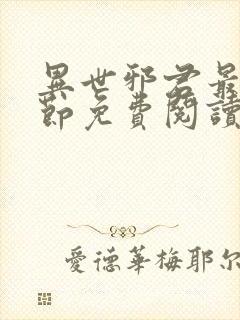 異世邪君最
節免費閱讀
愛德華梅耶尔